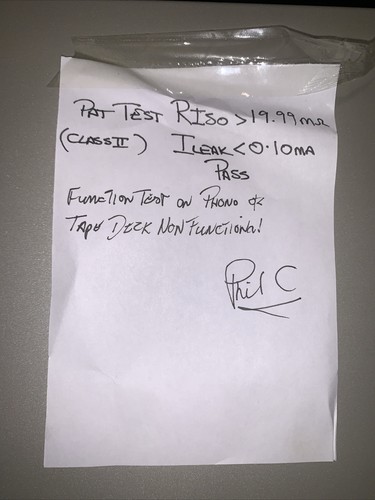 PAT TEST RISO > 19.99MΩ
(CLASS II) ILEAK < 0.10MA
PASS
FUNCTION TEST ON PHONO &
TAPE DECK NON FUNCTIONAL!
Phil C